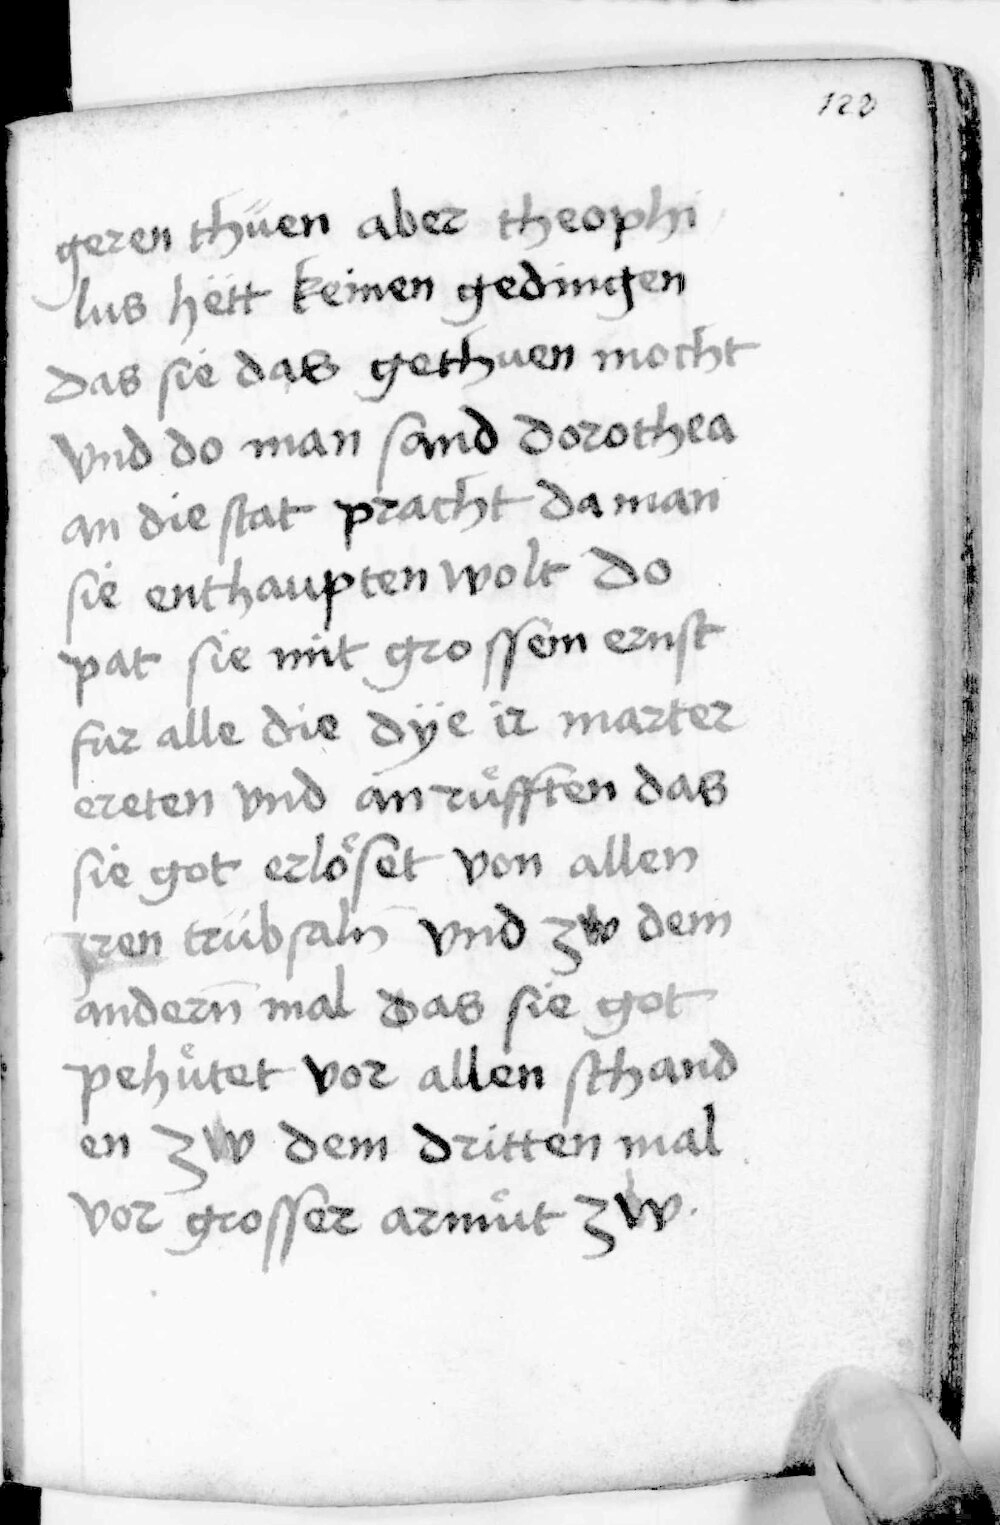 122
geren thüen aber theophi
lus hëtt keinen gedingen
das sie das gethuen mocht
vnd do man sand dorothea
an die stat pracht da man
sie enthaupten wolt do
pat sie mit grossem ernst
fur alle die dÿe ir marter
ereten vnd an růͤfften das
sie got erloͤset von allen
jren trübsaln̄ vnd zw dem
andern̄ mal das sie got
pehuͤtet vor allen schand
en zw dem dritten mal
vor grosser armuͤt zw.